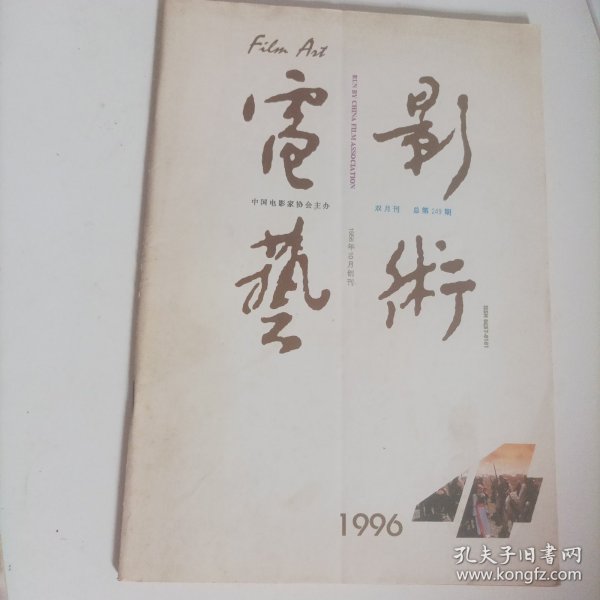 Film Art
電影
藝術
RUN BY CHINA FILM ASSOCIATION
中国电影家协会主办
双月刊 总第249期
1956年10月创刊
1996
4
孔夫子旧书网
www.kongfz.com